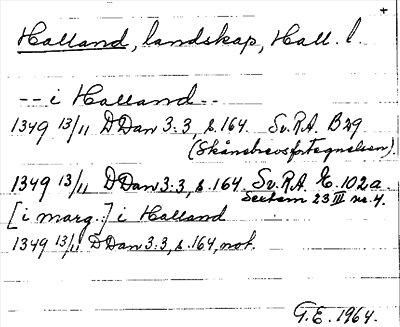 +
Halland, landskap, Hall. l.
-- i Halland --
1349 13/11 DDan 3:3, s. 164. Sv.R.A. B 29
(Skånebrevsfortegnelsen).
1349 13/11 DDan 3:3, s. 164. Sv.R.A. E. 102a.
Sextern 23 III nr. 4.
[i marg.:] i Halland
1349 13/11 DDan 3:3, s. 164, not.
G.E. 1964.